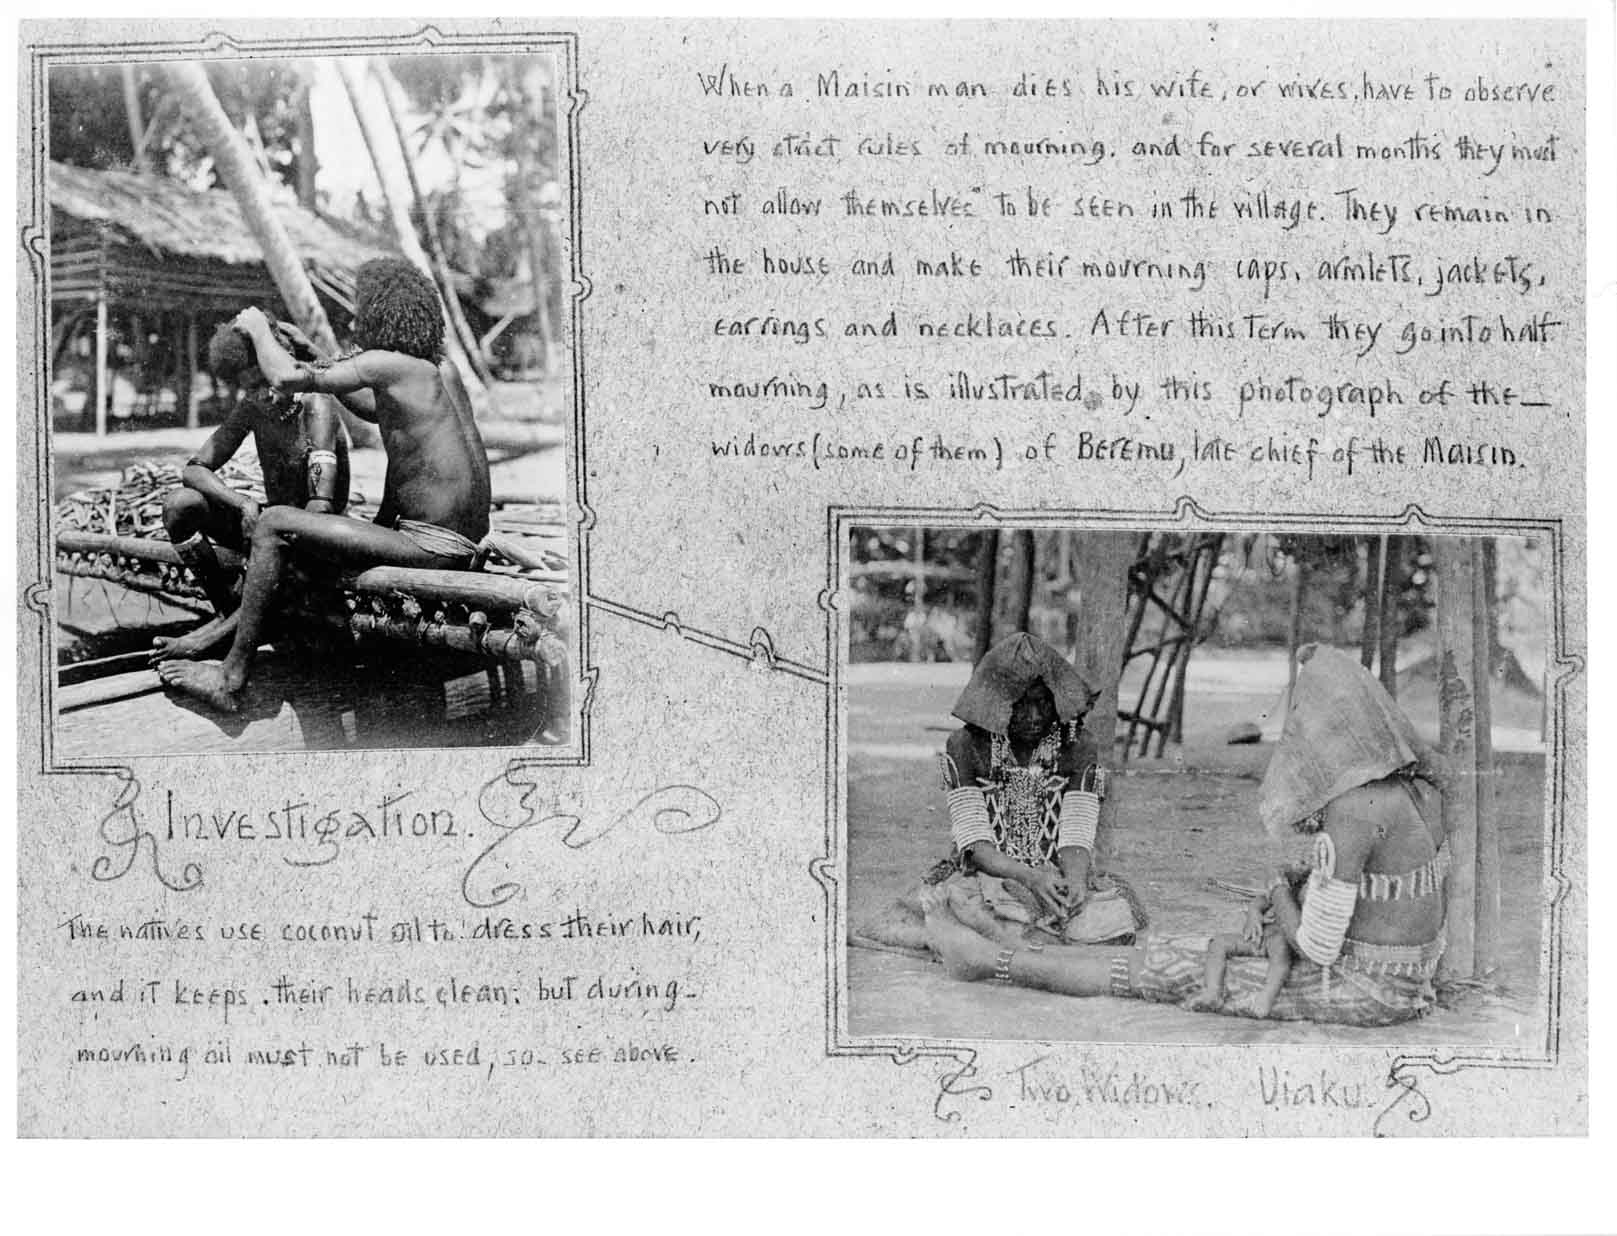 When a Maisin man dies his wife, or wives, have to observe
very strict rules of mourning, and for several months they must
not allow themselves to be seen in the village. They remain in
the house and make their mourning caps, armlets, jackets,
earrings and necklaces. After this term they go into half
mourning, as is illustrated by this photograph of the
widows (some of them) of Beremu, late chief of the Maisin.
Investigation.
The natives use coconut oil to dress their hair,
and it keeps their heads clean; but during
mourning oil must not be used, so see above.
Two Widows. Uiaku.